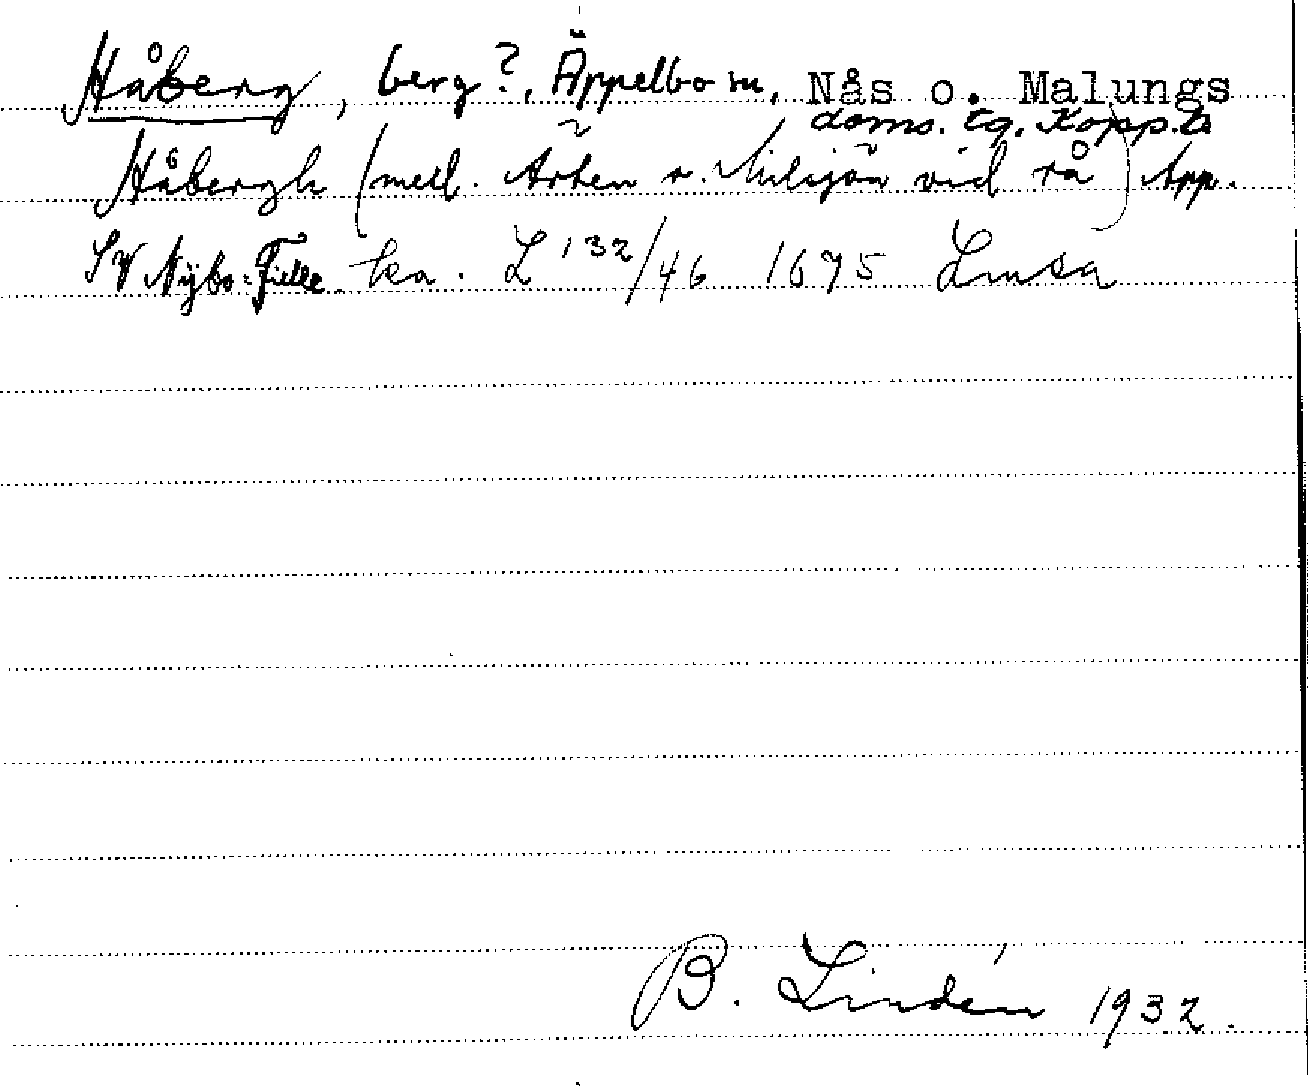 Håberg, berg?, Äppelbo sn, Nås o. Malungs
doms. tg. Kopp. l.
Håbergh (mell. Arten o. Milsjön vid rå) App.
SV Nybo: Fielle ka. L 132/46 1675 Lmsa
B. Lindén 1932.